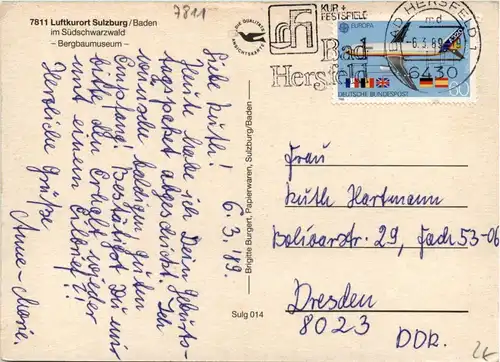 7811 Luftkurort Sulzburg/Baden
im Südschwarzwald
– Bergbaumuseum –
7811
DIE QUALITÄTS
ANSICHTSKARTE
KUR +
FESTSPIELE
Bad
Hersfeld
BAD HERSFELD 1
md
- 6.3.89
6430
EUROPA
DEUTSCHE BUNDESPOST
60
6.3.89.
Liebe Ruth!
Heute habe ich Dein Geburts-
tagpaket abgeschickt. Ich
wünsche baldigen guten
Empfang! Bestätigst Du mir
bitte den Erhalt wieder
mit einem Eilbrief?!
Herzliche Grüße
Anne-Marie.
Brigitte Burgert, Papierwaren, Sulzburg/Baden –
Sulg 014
Frau
Ruth Hartmann
Bolivarstr. 29, Fach 53-06
Dresden
8023
DDR.